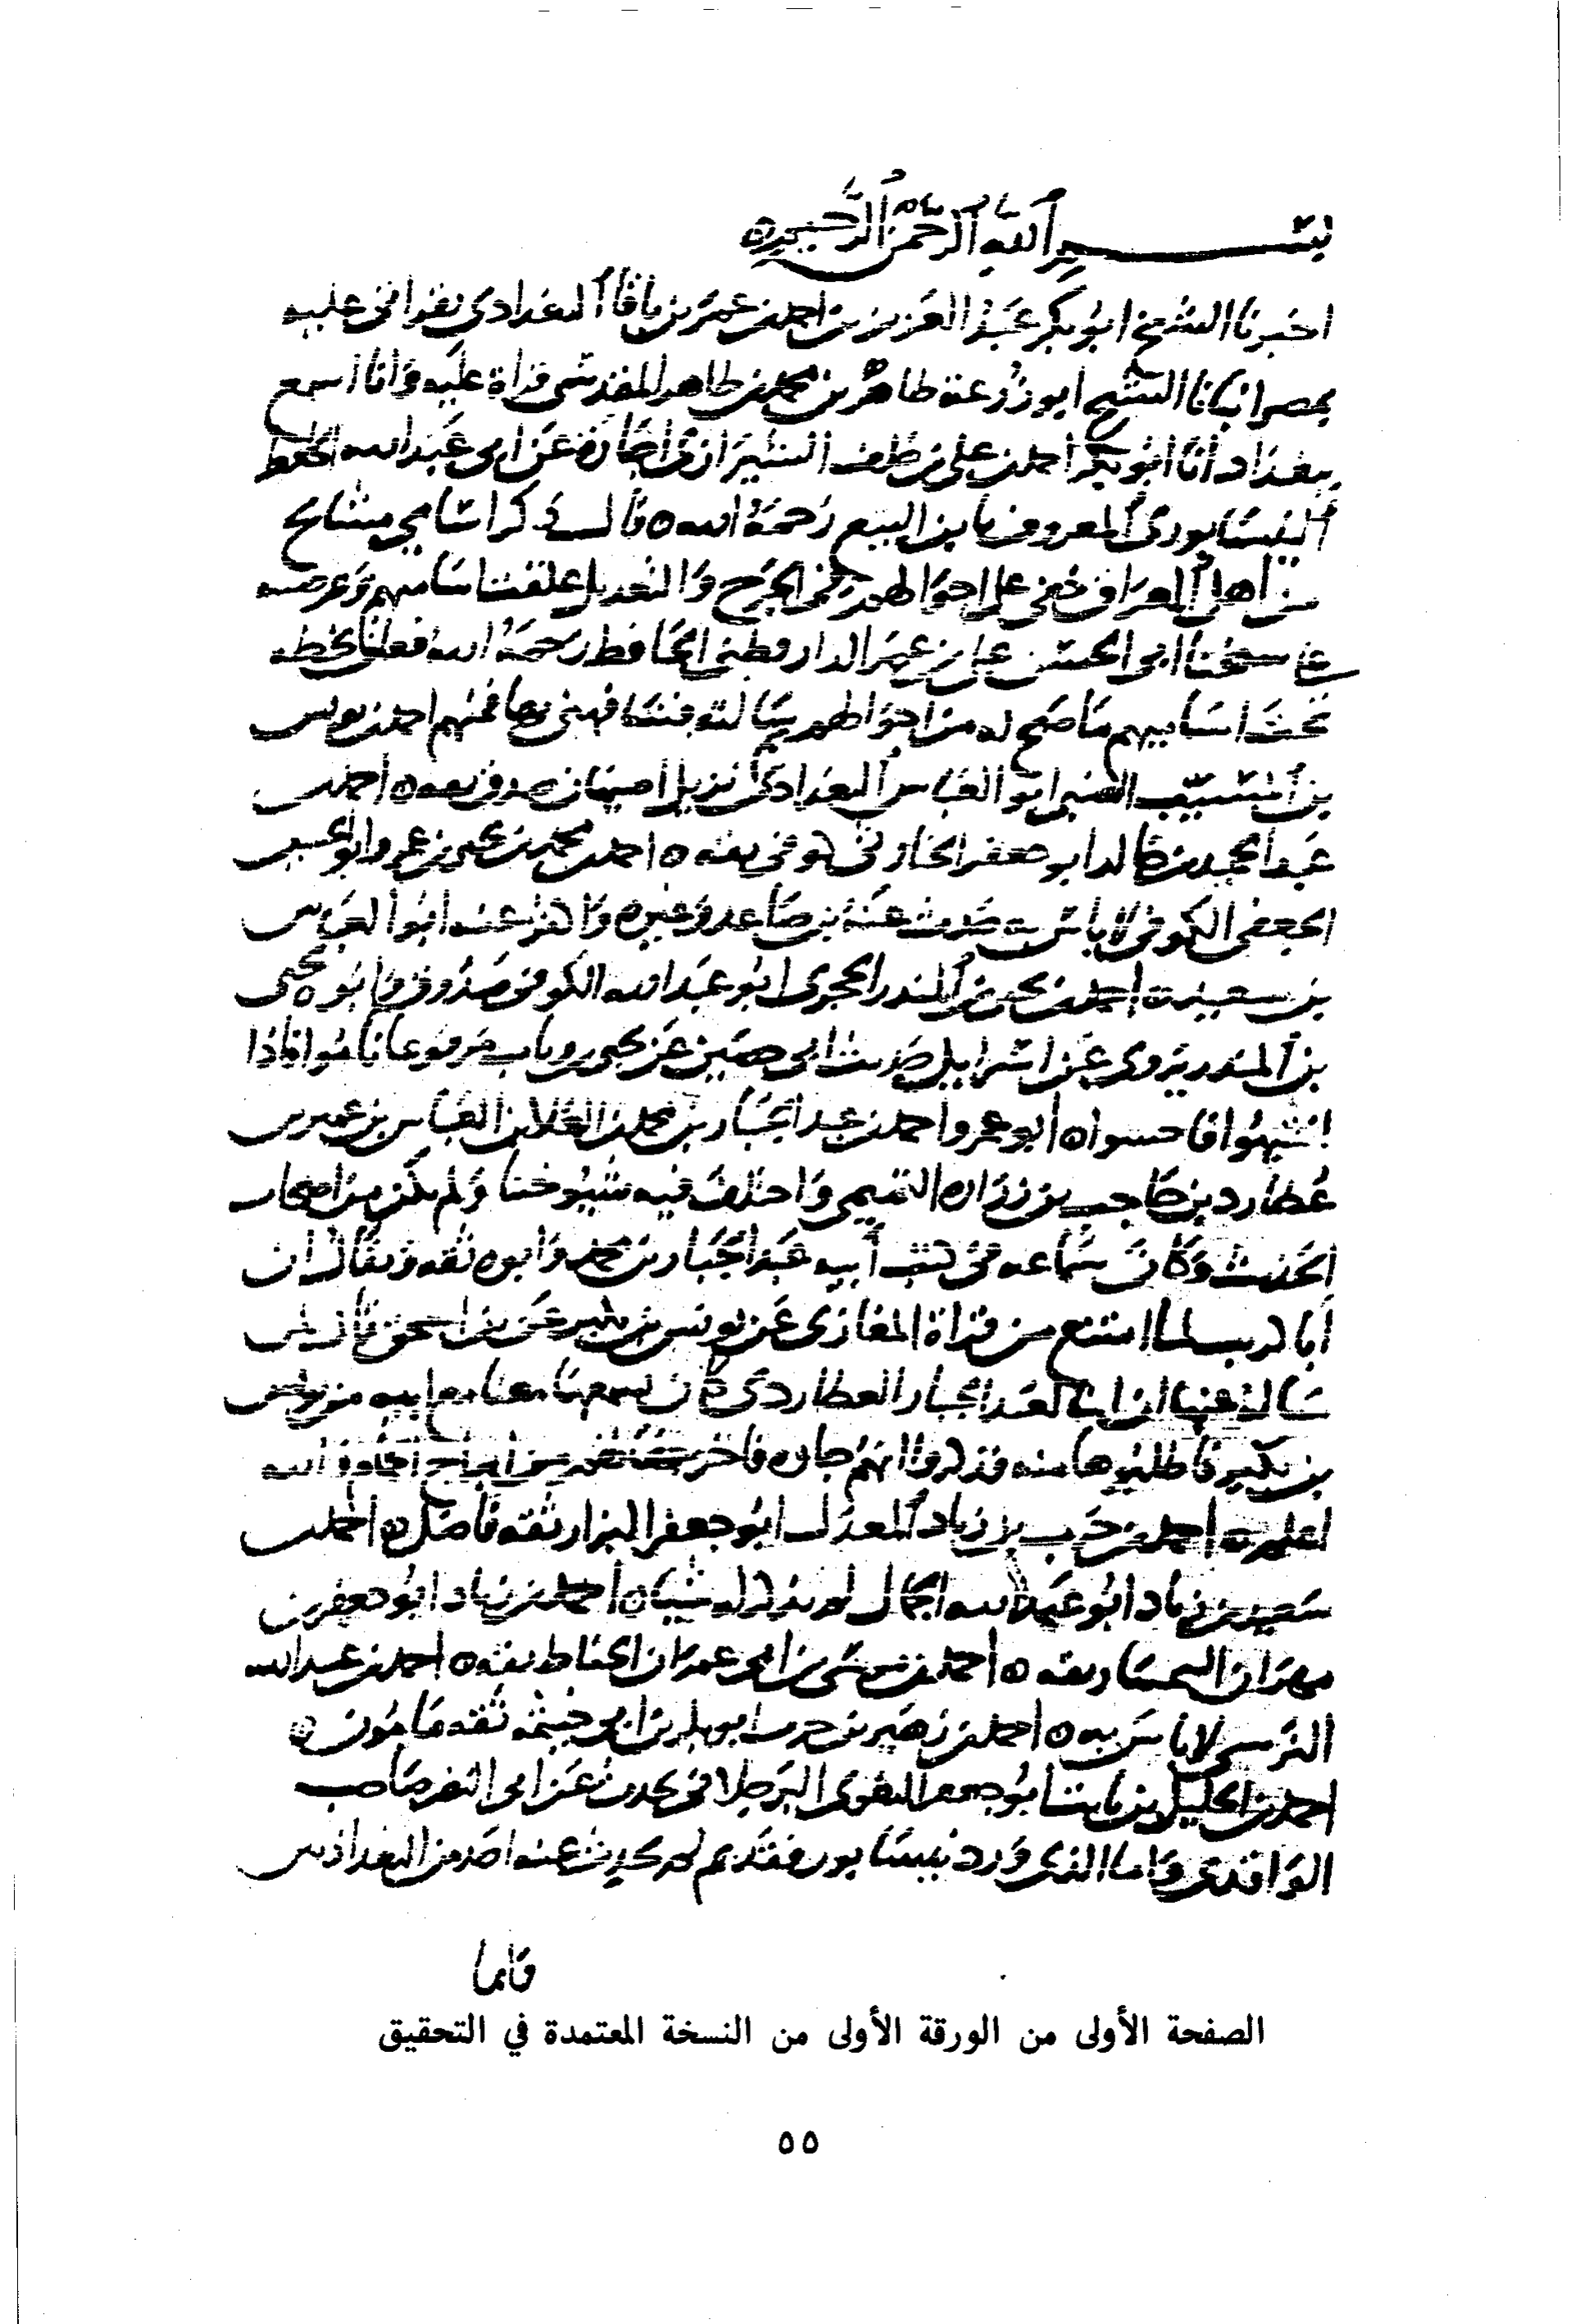 بسم الله الرحمن الرحيم ٥
اخبرنا الشيخ ابو بكر عبد العزيز بن احمد بن عمر بن باقا البغدادي بقراتي عليه
بمصر انبانا الشيخ ابو زرعة طاهر بن محمد بن طاهر المقدسي قراة عليه وانا اسمع
ببغداد انا ابو بكر احمد بن علي بن خلف الشيرازي اجازة عن ابي عبد الله الحافظ
النيسابوري المعروف بابن البيع رحمه الله ٥ قال ذكر اسامي مشايخ
من اهل العراق خفي علي احوالهم في الجرح والتعديل علقت اساميهم وعرضته
على شيخنا ابي الحسن علي بن عمر الدارقطني الحافظ رحمه الله فعلق بخطه
تحت اساميهم ما صح له من احوالهم فمنهم احمد بن يونس
بن المسيب الضبي ابو العباس البغدادي نزيل اصبهان صدوق ثقه ٥ احمد بن
عبد الحميد بن خالد ابو جعفر الحارثي كوفي ثقه ٥ احمد بن محمد بن يحيى بن عمرو ابو
الجعفي الكوفي لا باس به حدث عنه بن صاعد وغيره واكثر عنه ابو العباس
بن سعيد ٥ احمد بن يحيى بن المنذر الحجري ابو عبد الله الكوفي صدوق وابوه يحيى
بن المنذر يروي عن اسرايل حديث ابي حصين عن يحيى بن وثاب مرفوعا ناموا فاذا
انتبهتوا فاحسنوا ٥ ابو عمرو احمد بن عبد الجبار بن محمد بن العلا بن العباس بن عمير بن
عطارد بن حاجب بن زراره التميمي واختلف فيه شيوخنا ولم يكن من اصحاب
الحديث وكان سماعه في كتب أبيه عبد الجبار بن محمد وابوه ثقه ويقال ان
أبا كريب لما امتنع من قراة المغازي عن يونس بن بكير عن بن اسحق قال لمن
ساله عنها ان ابنا لعبد الجبار العطاردي كان يسمعها معنا مع ابيه من يونس
بن بكير فاطلبوها منه فذكروا انهم جاوه فاخرجها من ابراج الحمام والله
اعلم ٥ احمد بن حرب بن زياد المعدل ابو جعفر البزار ثقه فاضل ٥ احمد بن
سعيد بن زياد ابو عبد الله الجمال لم يذكر له شيا ٥ احمد بن زياد ابو جعفر بن
مهران السمسار ثقه ٥ احمد بن موسى بن ابي عمران الحناط ثقه ٥ احمد بن عبيد الله
النرسي لا باس به ٥ احمد بن زهير بن حرب ابو بكر بن ابي خيثمه ثقه مامون ٥
احمد بن الخليل بن ثابت ابو جعفر البغوي البرجلاني يحدث عن ابي النضر صاحب
الواقدي واما الذي ورد نيسابور فقديم لم يحدث عنه احد من البغداديين
فاما
الصفحة الأولى من الورقة الأولى من النسخة المعتمدة في التحقيق
٥٥